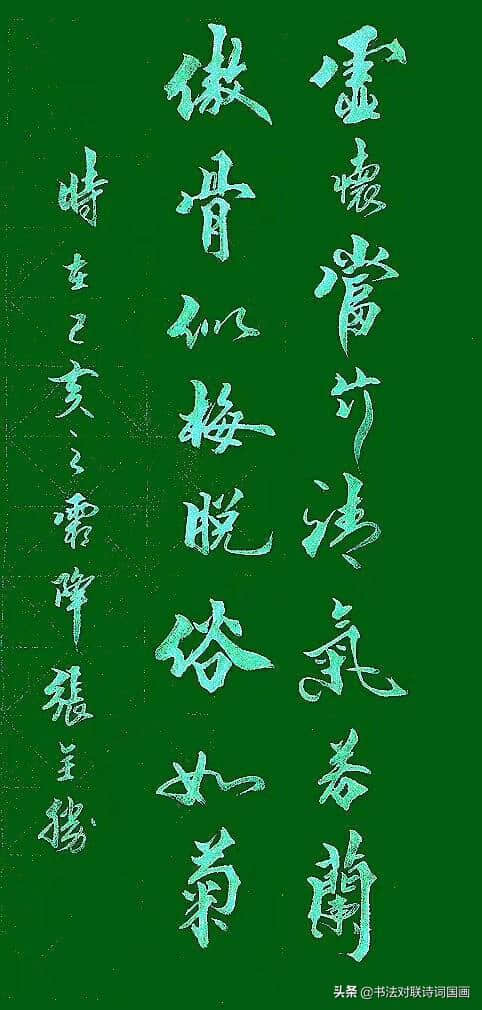 虛懷當竹清氣若蘭
傲骨似梅脫俗如菊
時在己亥之霜降張勝
头条 @书法对联诗词国画